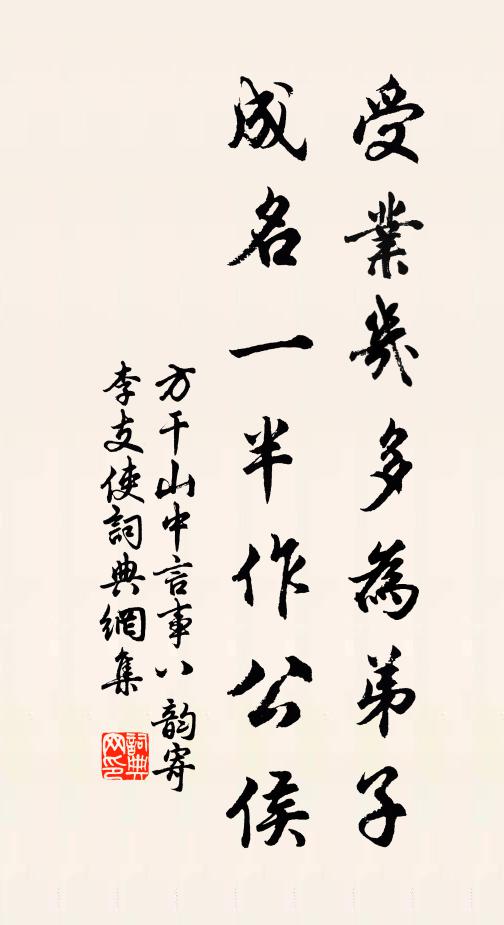 受業幾多為弟子
成名一半作公侯
方干山中言事八韻寄
李支使詞典網集
詞典
网印